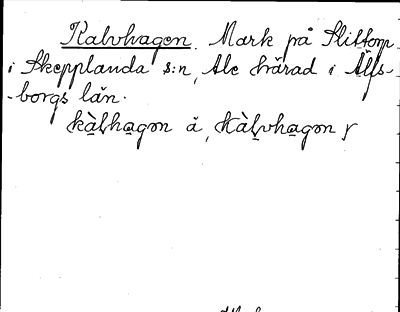 Kalvhagen. Mark på Slittorp
i Skepplanda s:n, Ale härad i Älfs-
-borgs län.
kàlhagən ä, kàlvhagən y